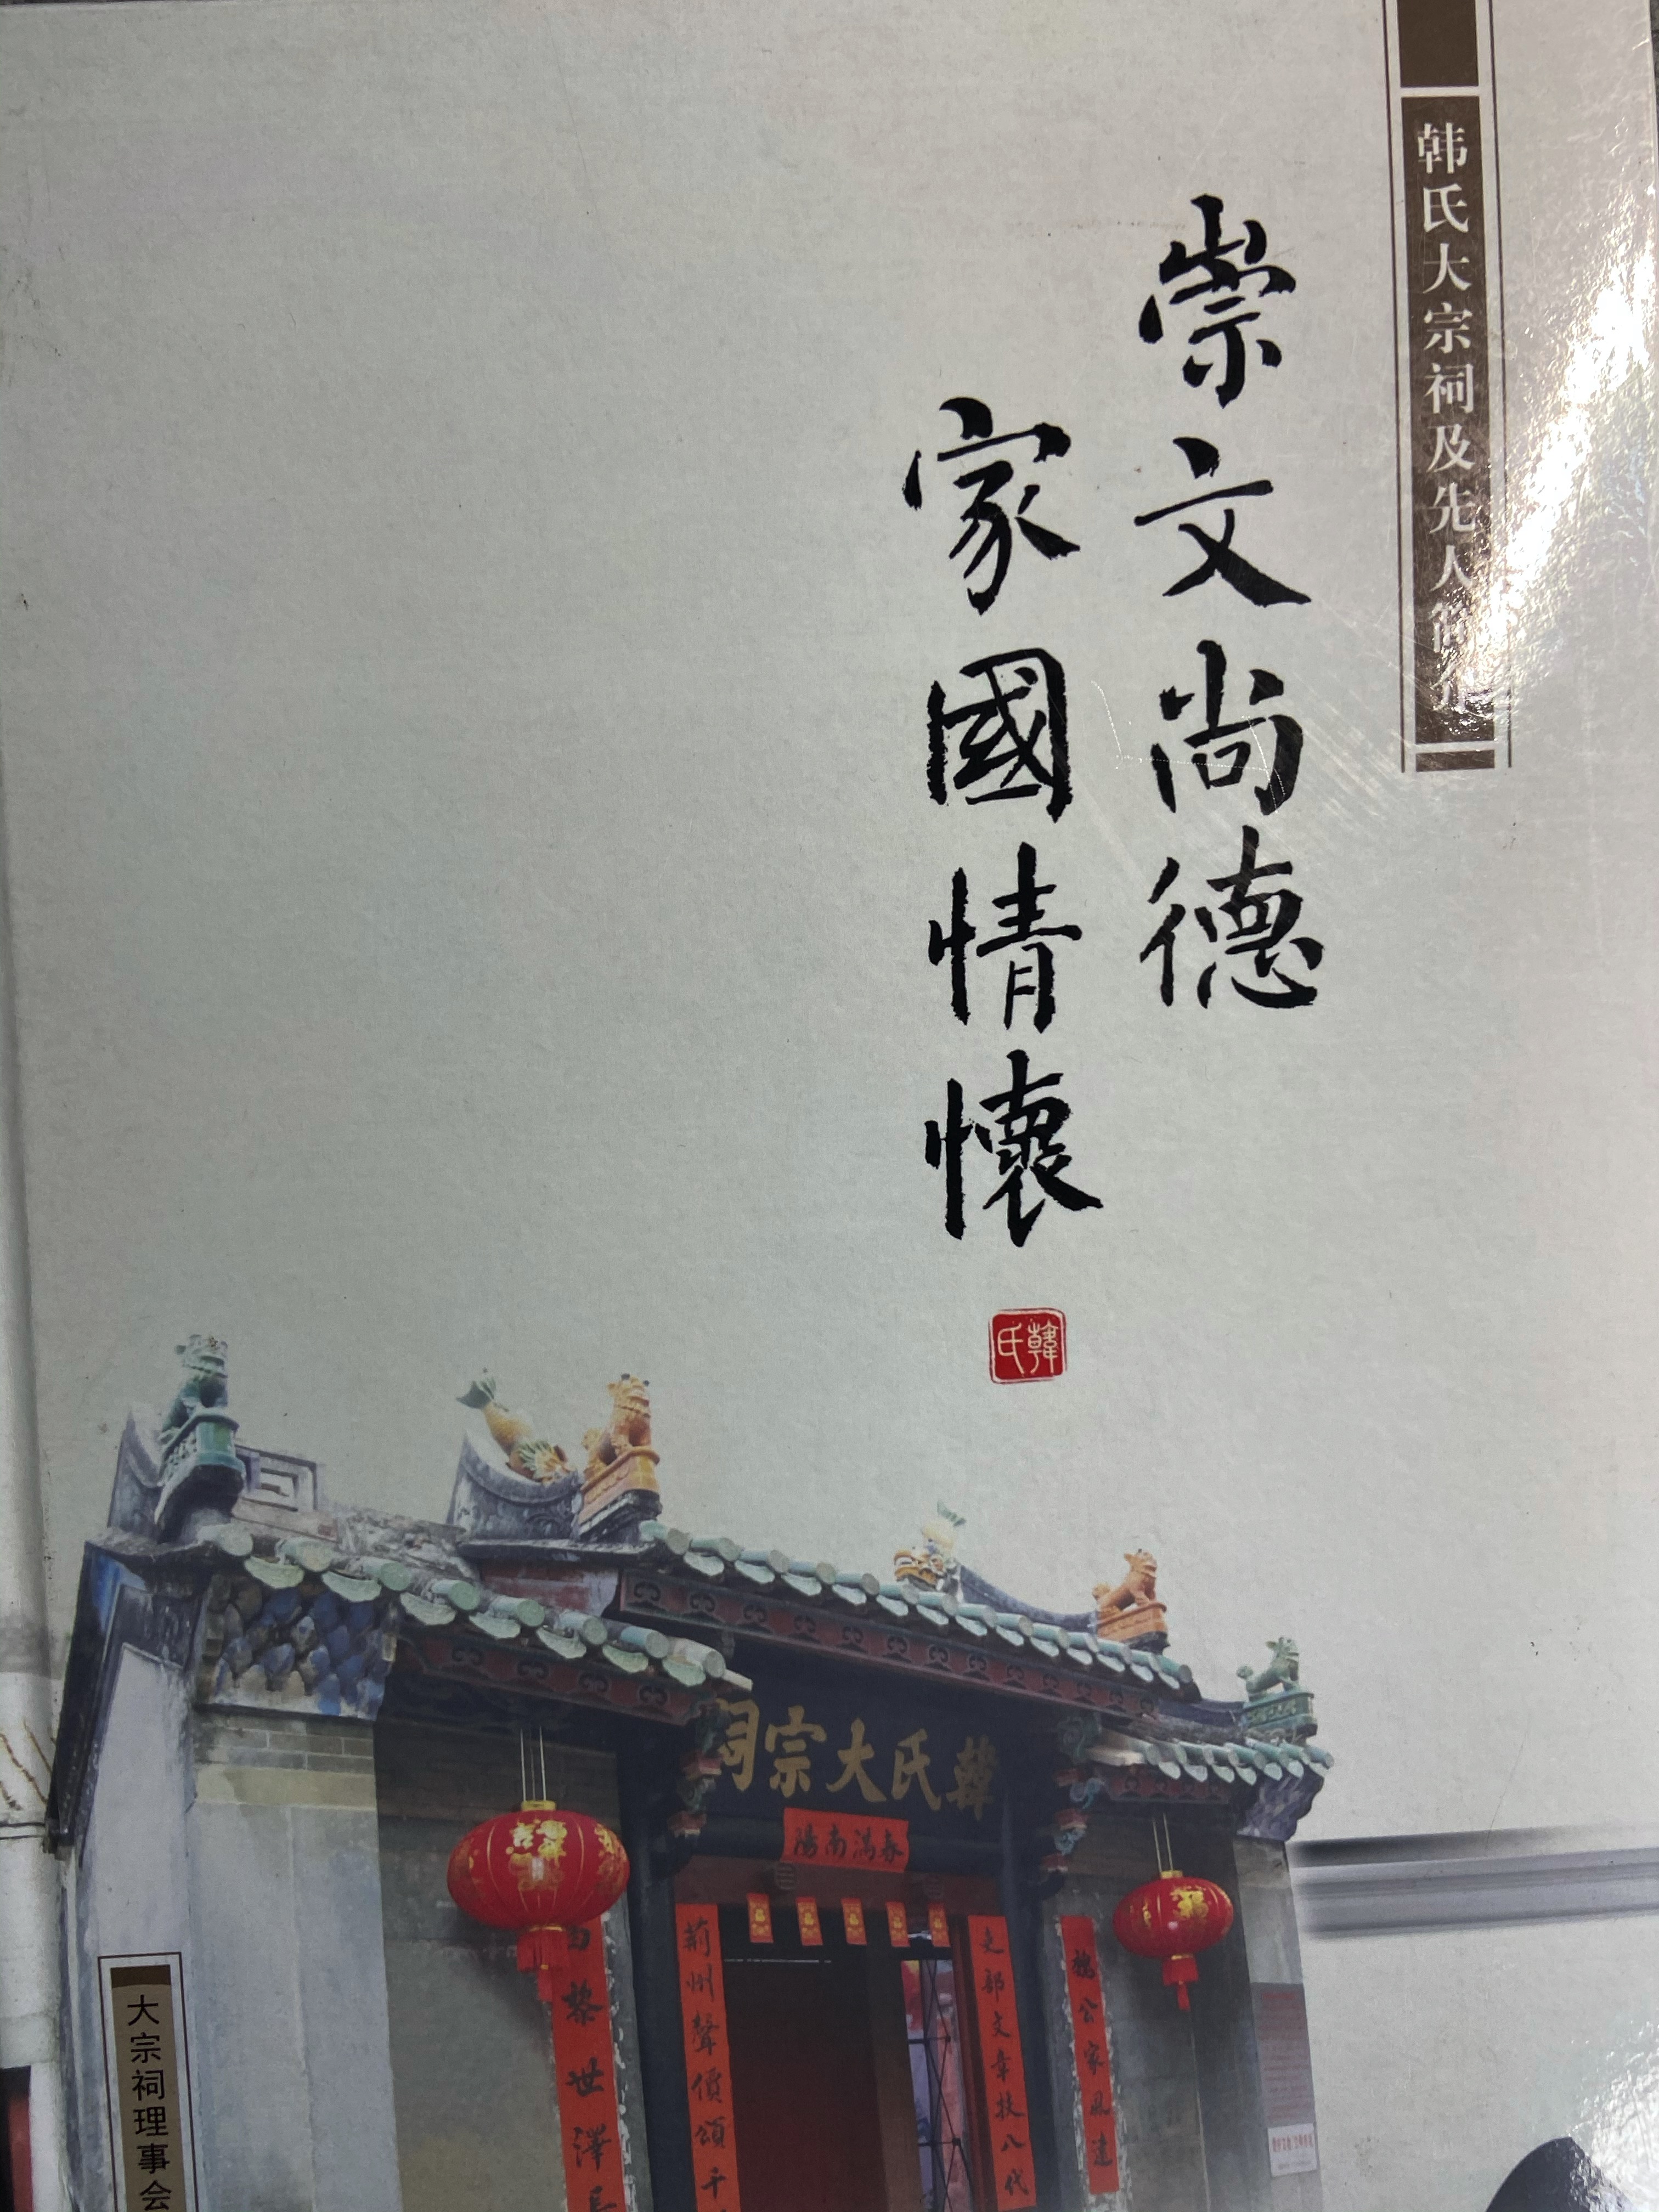 韩氏大宗祠及先人简介
崇文尚德
家國情懷
韓氏
韓氏大宗祠
春滿南陽
魏公家風遠
吏部文章技八代
荊州聲價頌千
黎世澤長
大宗祠理事会